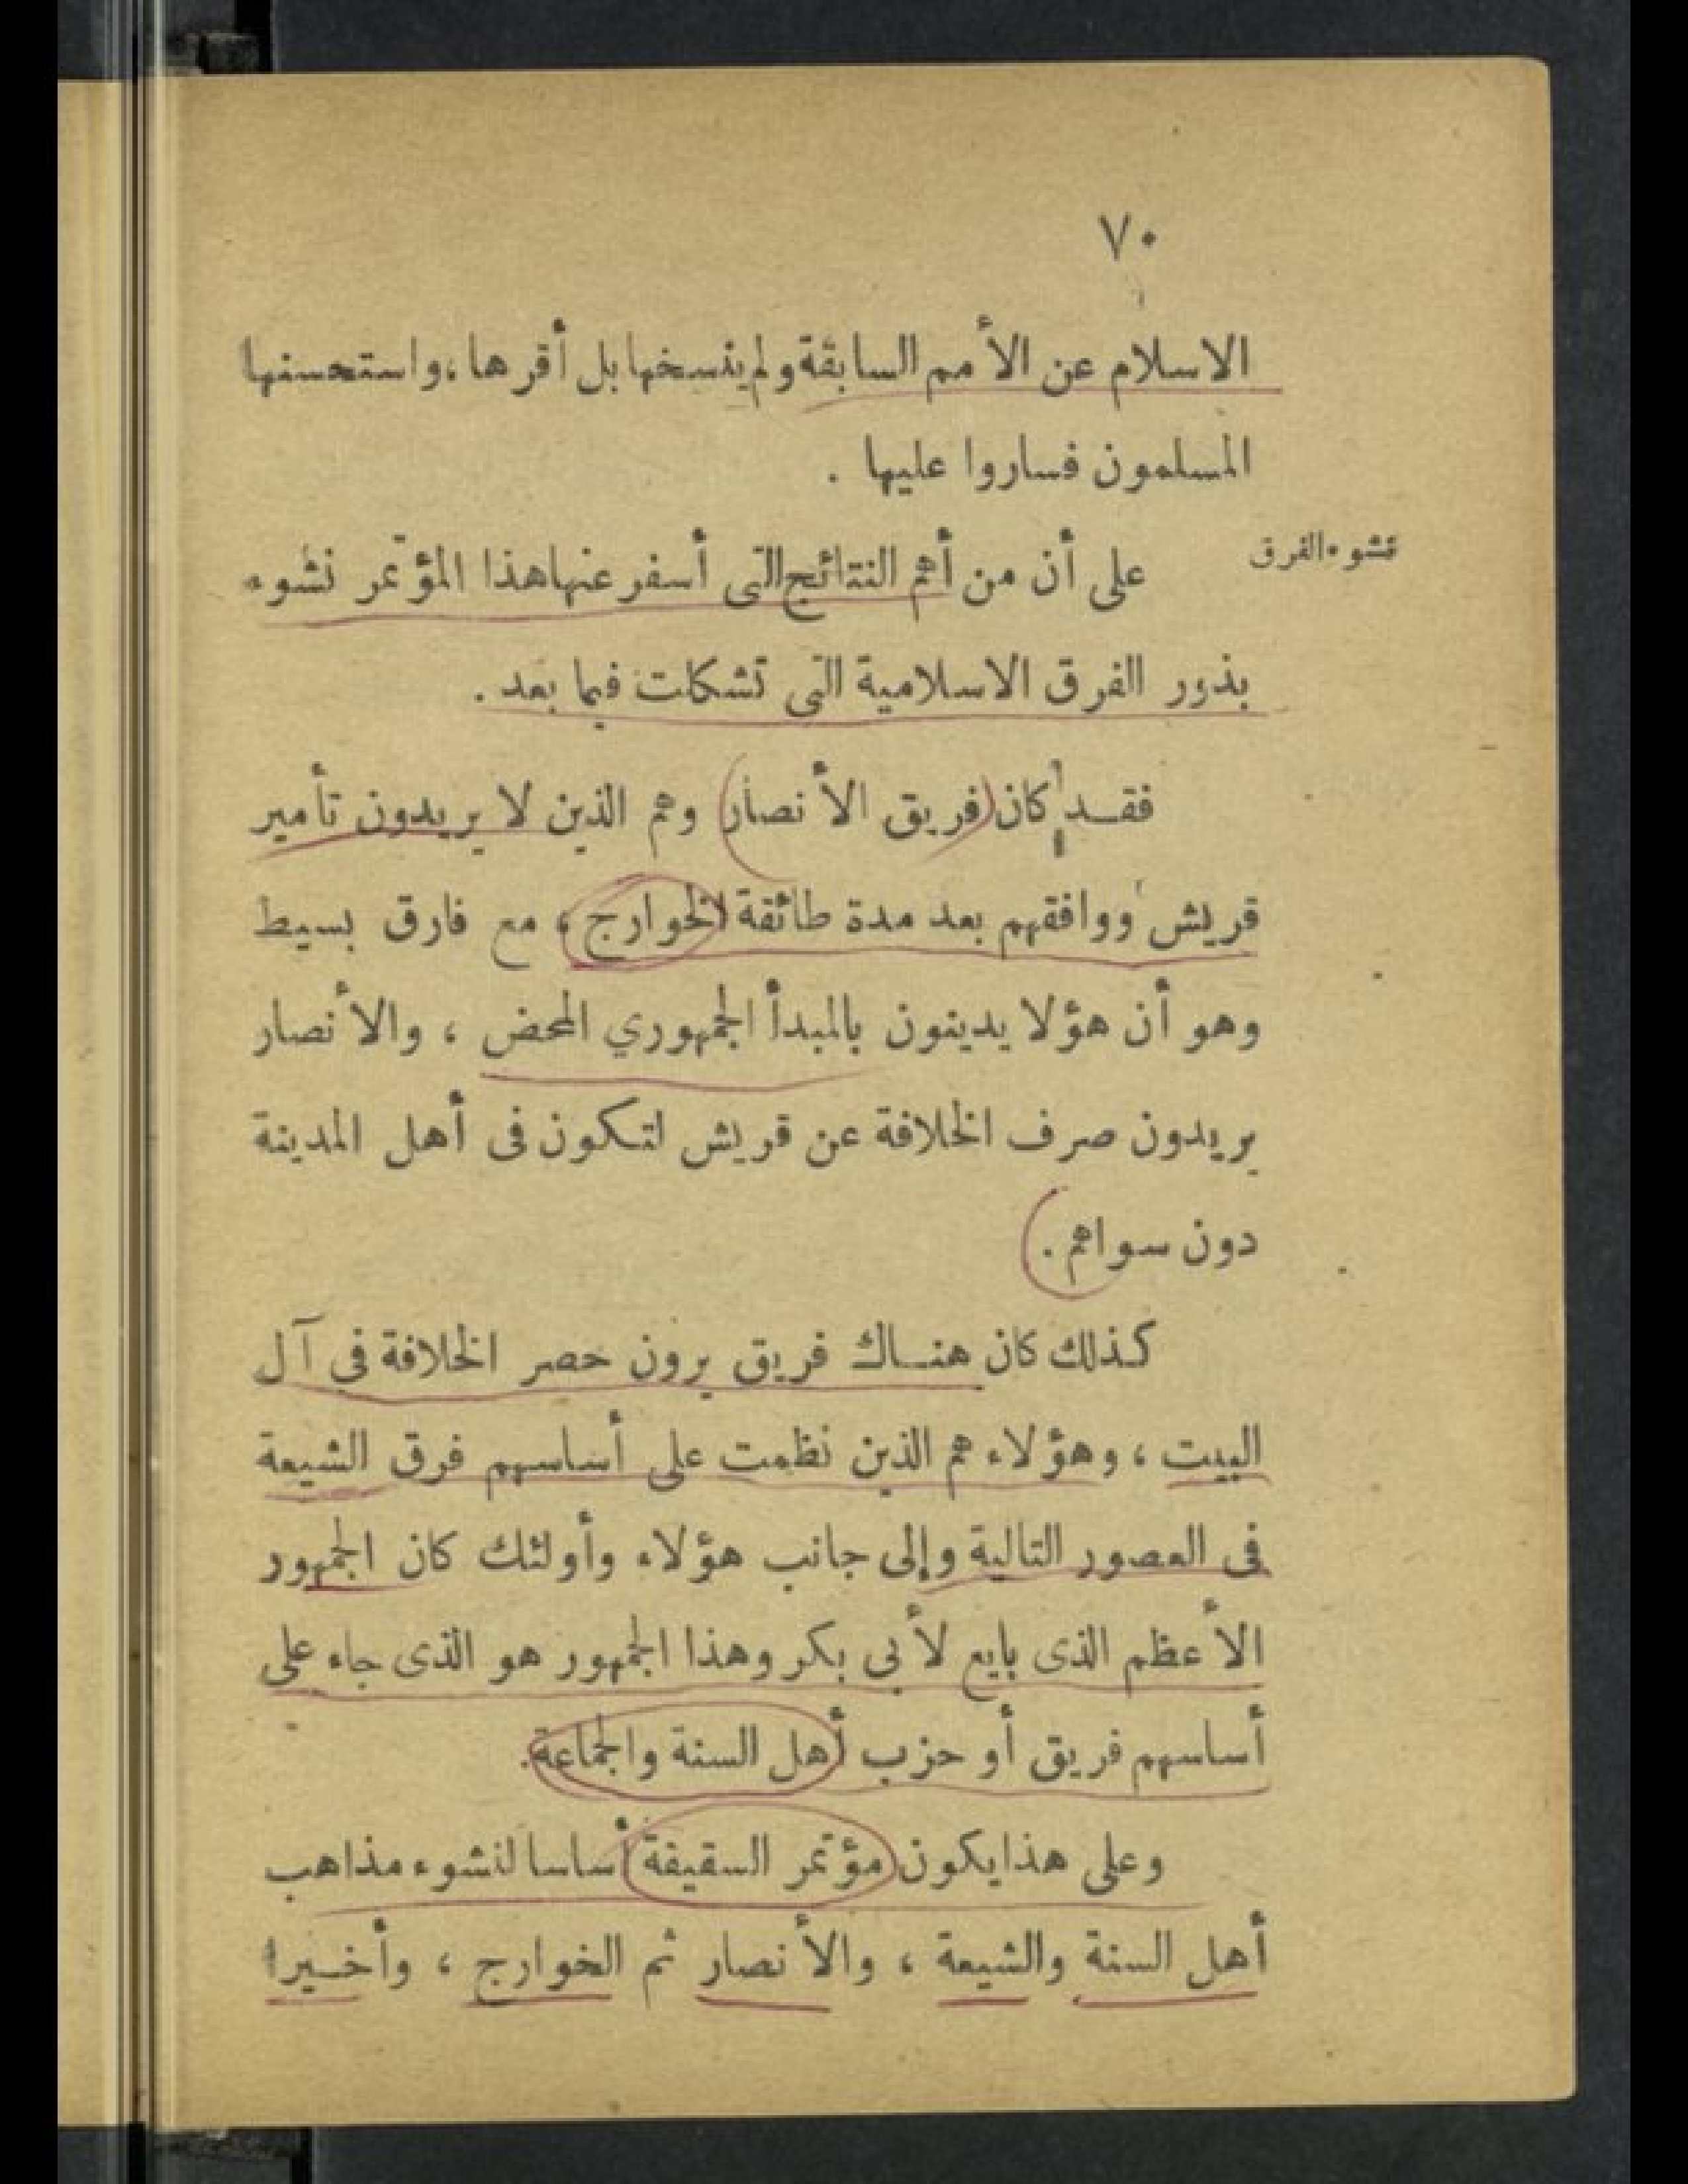 ٧٠
الاسلام عن الأمم السابقة ولم ينسخها بل أقرها ، واستحسنها
المسلمون فساروا عليها .
نشوء الفرق
على أن من أهم النتائج التى أسفر عنها هذا المؤتمر نشوء
بذور الفرق الاسلامية التى تشكلت فيما بعد .
فقد كان فريق الأنصار وهم الذين لا يريدون تأمير
قريش ووافقهم بعد مدة طائفة الخوارج ، مع فارق بسيط
وهو أن هؤلا يدينون بالمبدأ الجمهوري المحض ، والأنصار
يريدون صرف الخلافة عن قريش لتكون فى أهل المدينة
دون سواهم .
كذلك كان هناك فريق يرون حصر الخلافة فى آل
البيت ، وهؤلاء هم الذين نظمت على أساسهم فرق الشيعة
فى العصور التالية وإلى جانب هؤلاء وأولئك كان الجمهور
الأعظم الذى بايع لأبي بكر وهذا الجمهور هو الذى جاء على
أساسهم فريق أو حزب أهل السنة والجماعة .
وعلى هذا يكون مؤتمر السقيفة أساسا لنشوء مذاهب
أهل السنة والشيعة ، والأنصار ثم الخوارج ، وأخيرا